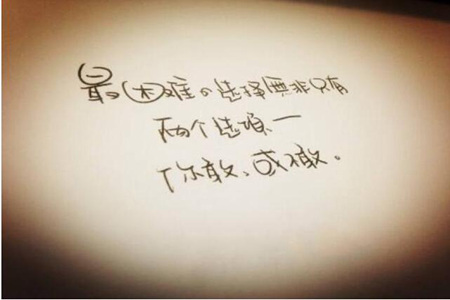 最困难の选择無非只有
两个选项一
你敢、或敢。